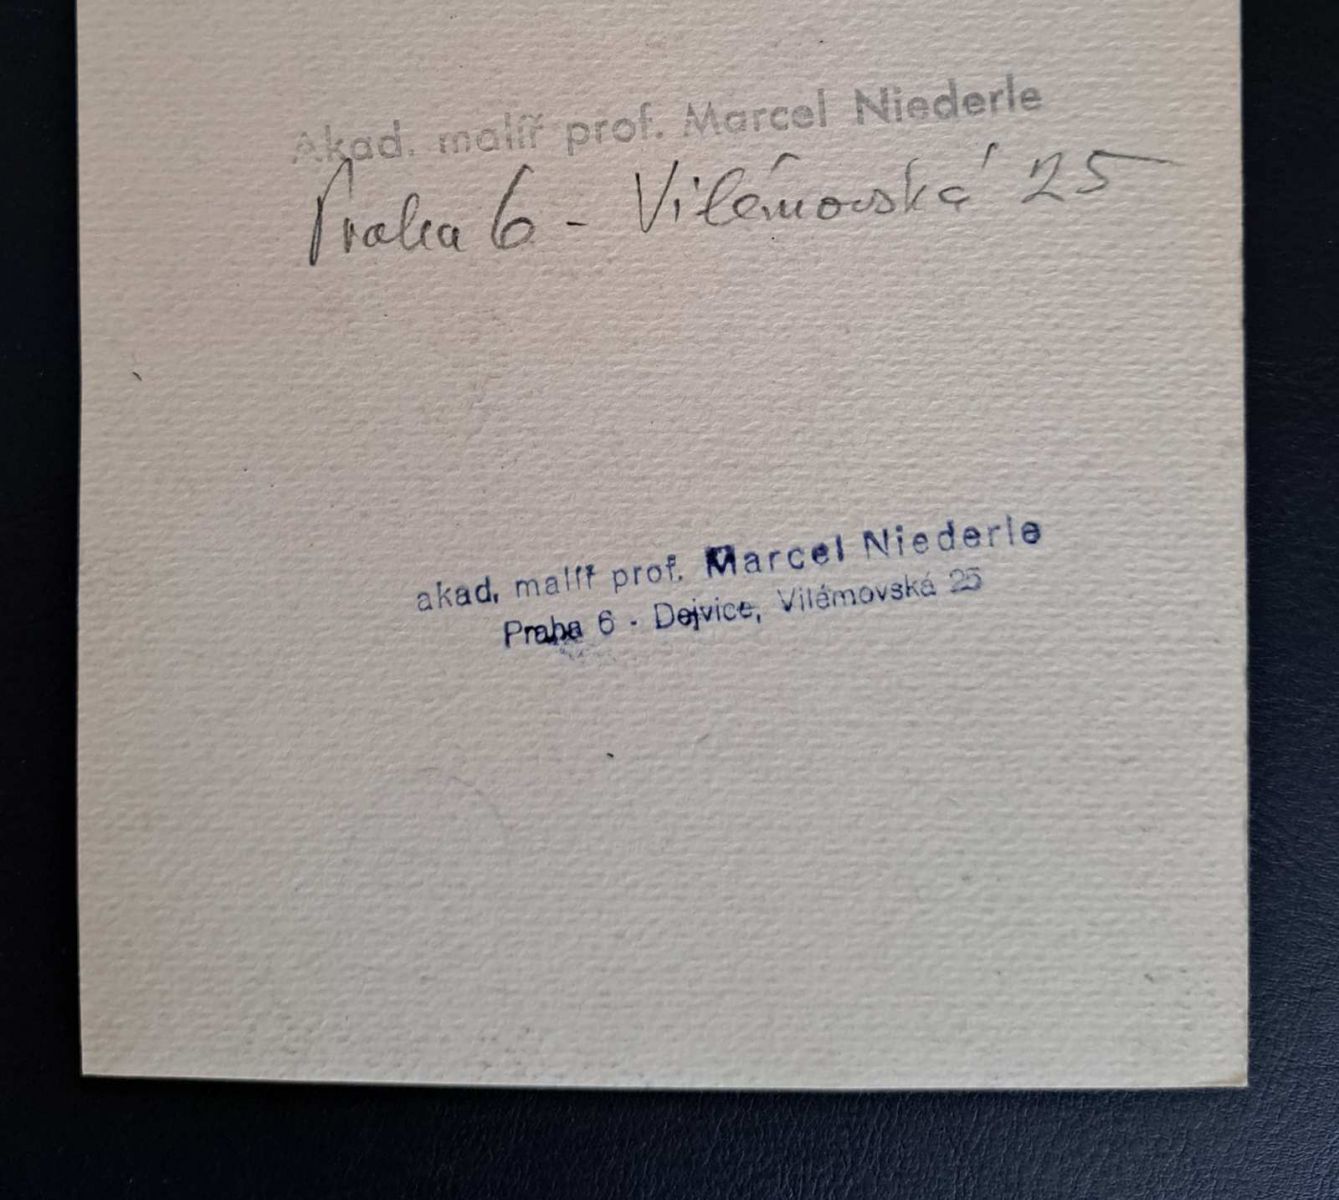 Akad. malíř prof. Marcel Niederle
Praha 6 - Vilémovská 25
akad. malíř prof. Marcel Niederle
Praha 6 - Dejvice, Vilémovská 25